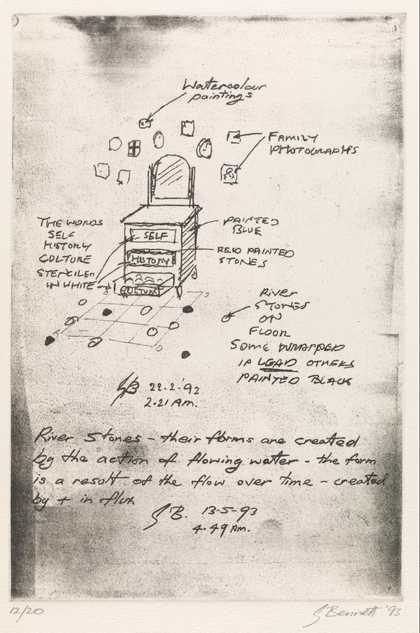 Watercolour
paintings
FAMILY
PHOTOGRAPHS
THE WORDS
SELF
HISTORY
CULTURE
STENCILED
IN WHITE
SELF
HISTORY
CULTURE
PAINTED
BLUE
RED PAINTED
STONES
River
STONES
ON
FLOOR
SOME WRAPPED
IN LEAD OTHERS
PAINTED BLACK
GB 22-2-'92
2.21 AM.
River Stones - their forms are created
by the action of flowing water - the form
is a result of the flow over time - created
by + in flux
GB. 13-5-93
4.49 AM.
12/20
G Bennett '93